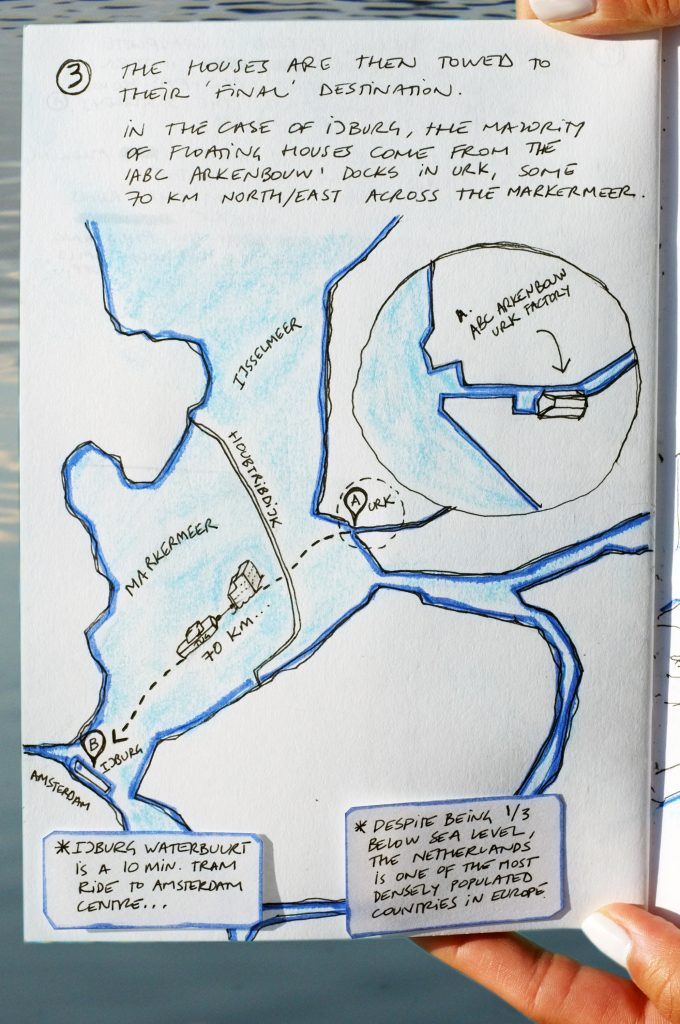 3 THE HOUSES ARE THEN TOWED TO
THEIR 'FINAL' DESTINATION.
IN THE CASE OF IJBURG, THE MAJORITY
OF FLOATING HOUSES COME FROM THE
'ABC ARKENBOUW' DOCKS IN URK, SOME
70 KM NORTH/EAST ACROSS THE MARKERMEER.
A.
ABC ARKENBOUW
URK FACTORY
IJSSELMEER
HOUBTRIBDIJK
A URK
MARKERMEER
70 KM...
B
IJBURG
AMSTERDAM
* IJBURG WATERBUURT
IS A 10 MIN. TRAM
RIDE TO AMSTERDAM
CENTRE...
* DESPITE BEING 1/3
BELOW SEA LEVEL,
THE NETHERLANDS
IS ONE OF THE MOST
DENSELY POPULATED
COUNTRIES IN EUROPE.